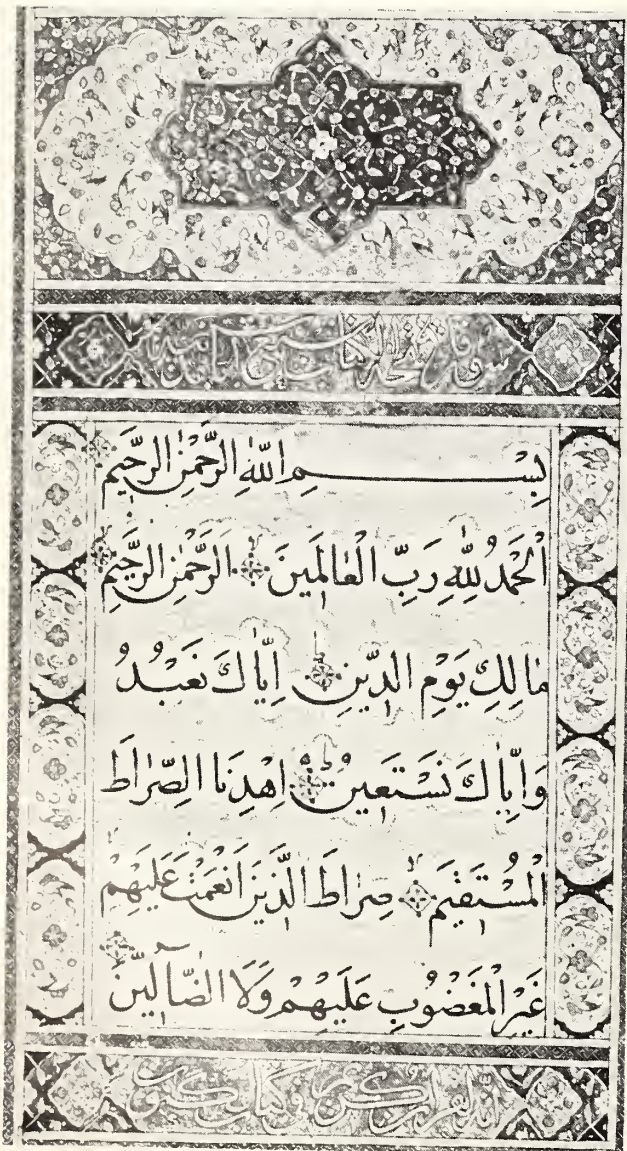 سورة فاتحة الكتاب سبع آيات
بِسْمِ اللّٰهِ الرَّحْمٰنِ الرَّحِيمِ
اَلْحَمْدُ لِلّٰهِ رَبِّ الْعٰالَمِينَ الرَّحْمٰنِ الرَّحِيمِ
مٰالِكِ يَوْمِ الدِّينِ اِيّٰاكَ نَعْبُدُ
وَاِيّٰاكَ نَسْتَعِينُ اِهْدِنَا الصِّرٰاطَ
الْمُسْتَقِيمَ صِرٰاطَ الَّذِينَ اَنْعَمْتَ عَلَيْهِمْ
غَيْرِ الْمَغْضُوبِ عَلَيْهِمْ وَلَا الضّٰٓالِّينَ
انه لقرآن كريم في كتاب مكنون